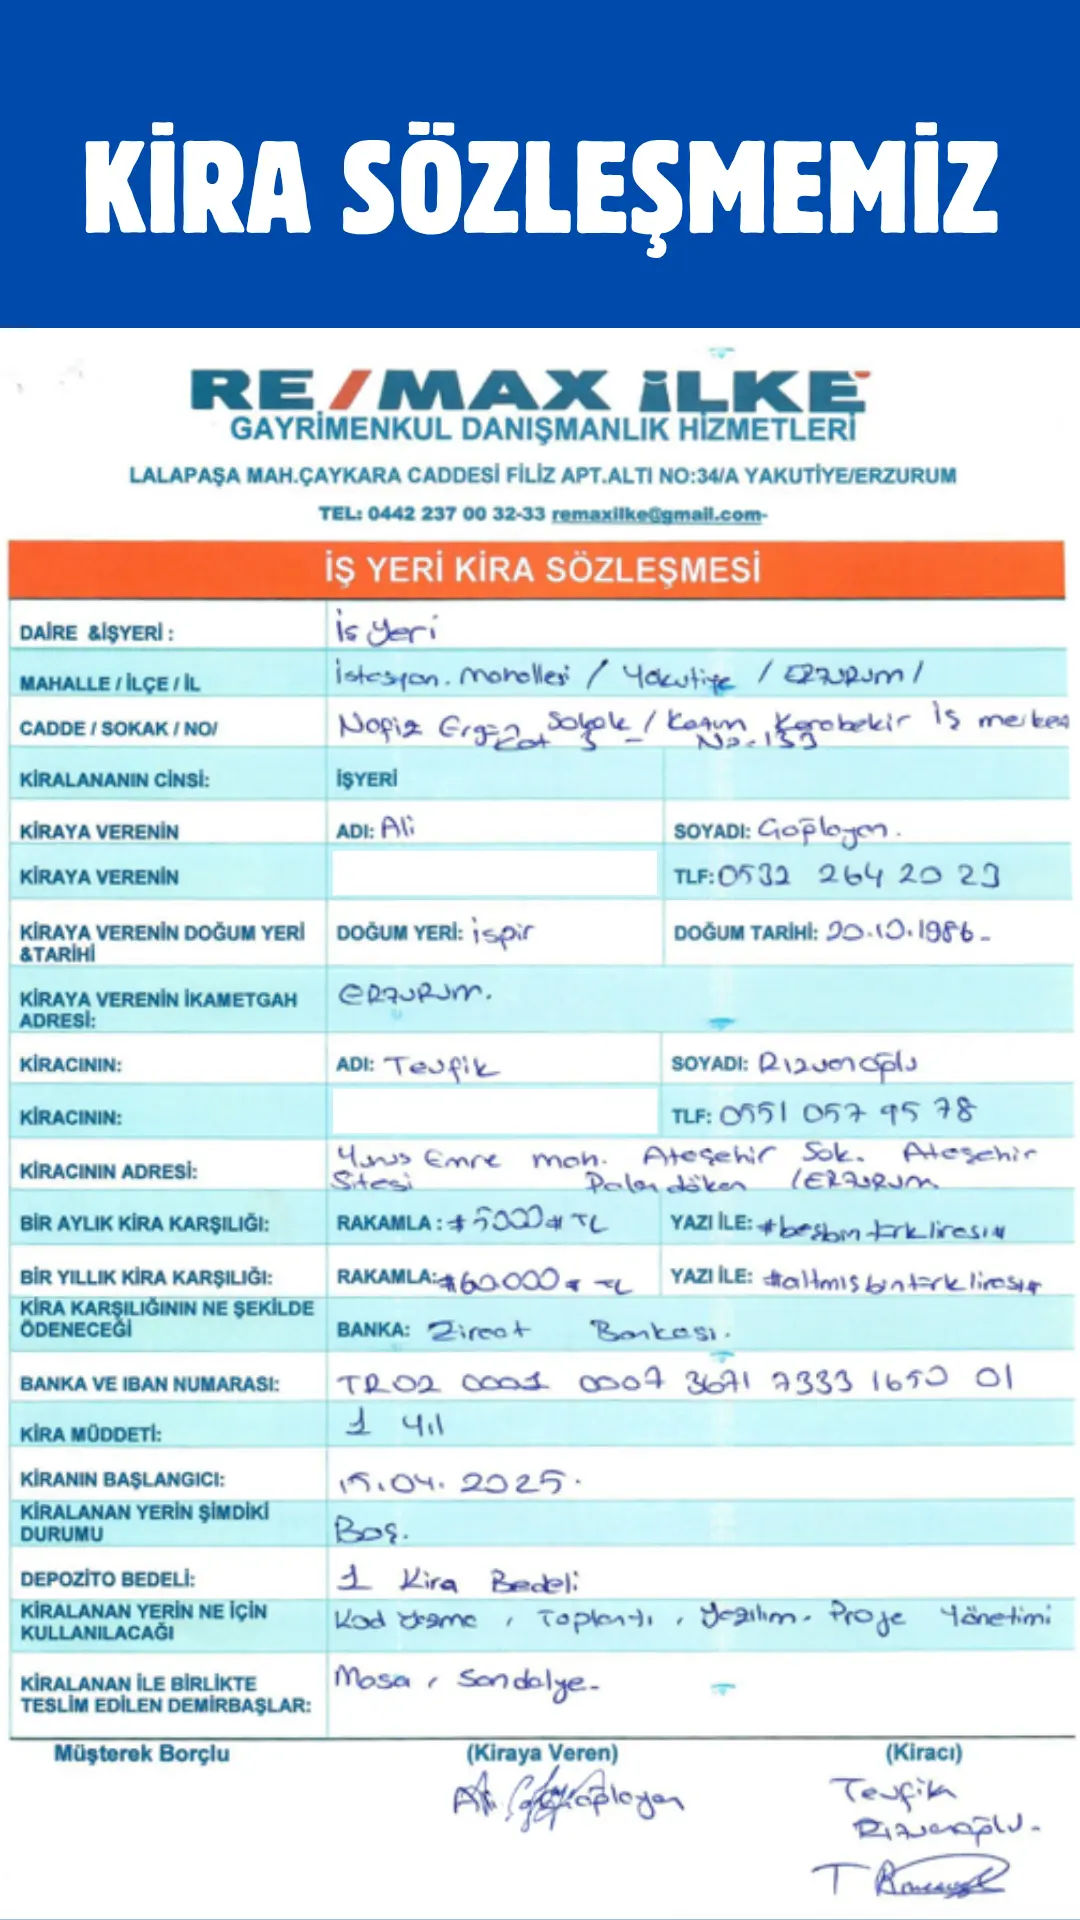 KİRA SÖZLEŞMEMİZ
RE/MAX İLKE
GAYRİMENKUL DANIŞMANLIK HİZMETLERİ
LALAPAŞA MAH.ÇAYKARA CADDESİ FİLİZ APT.ALTI NO:34/A YAKUTİYE/ERZURUM
TEL: 0442 237 00 32-33 remaxilke@gmail.com-
İŞ YERİ KİRA SÖZLEŞMESİ
DAİRE &İŞYERİ : İş Yeri
MAHALLE / İLÇE / İL İstasyon. Mahallesi / Yakutiye / ERZURUM /
CADDE / SOKAK / NO/ Nafiz Ergün Sokak / Kazım Karabekir İş merkez
Kat 3 - No-153
KİRALANANIN CİNSİ: İŞYERİ
KİRAYA VERENİN ADI: Ali SOYADI: Goplayan.
KİRAYA VERENİN TLF: 0532 264 20 23
KİRAYA VERENİN DOĞUM YERİ &TARİHİ DOĞUM YERİ: ispir DOĞUM TARİHİ: 20.10.1986-
KİRAYA VERENİN İKAMETGAH ADRESİ: ERZURUM.
KİRACININ: ADI: Tevfik SOYADI: Rızvanoğlu
KİRACININ: TLF: 0551 057 95 78
KİRACININ ADRESİ: Yunus Emre mah. Ateşehir Sok. Ateşehir
Sitesi Palandöken /ERZURUM
BİR AYLIK KİRA KARŞILIĞI: RAKAMLA : #5000# TL YAZI İLE: #beşbintürklirası#
BİR YILLIK KİRA KARŞILIĞI: RAKAMLA: #60.000# TL YAZI İLE: #altmışbintürklirası#
KİRA KARŞILIĞININ NE ŞEKİLDE ÖDENECEĞİ BANKA: Ziraat Bankası.
BANKA VE IBAN NUMARASI: TR02 0001 0007 3671 7333 1650 01
KİRA MÜDDETİ: 1 Yıl
KİRANIN BAŞLANGICI: 15.04.2025.
KİRALANAN YERİN ŞİMDİKİ DURUMU Boş.
DEPOZİTO BEDELİ: 1 Kira Bedeli
KİRALANAN YERİN NE İÇİN KULLANILACAĞI Kod yazma, Toplantı, Yazılım. Proje Yönetimi
KİRALANAN İLE BİRLİKTE TESLİM EDİLEN DEMİRBAŞLAR: Masa, Sandalye.
Müşterek Borçlu (Kiraya Veren) (Kiracı)
Tevfik
Rızvanoğlu.